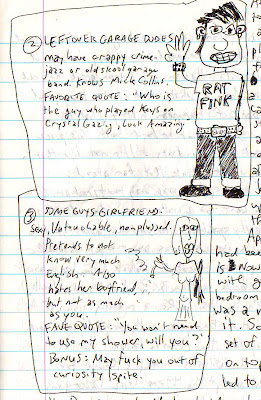 ② LEFTOVER GARAGE DUDES
may have crappy crime-
jazz or old skool garage
band. Knows Mick Collins.
FAVORITE QUOTE: "Who is
the guy who played Keys on
Crystal Gazing, Luck Amazing"
RAT
FINK
③ SOME GUYS GIRLFRIEND.
Sexy, Untouchable, nonplussed.
Pretends to not
know very much
English. Also
hates her boyfriend,
but not as much
as you.
FAVE QUOTE: "You won't need
to use my shower, will you?"
BONUS: May fuck you out of
curiosity/spite.
had bee
is Now
with g
bedroom
was a r
it. So
set of
on top
led to